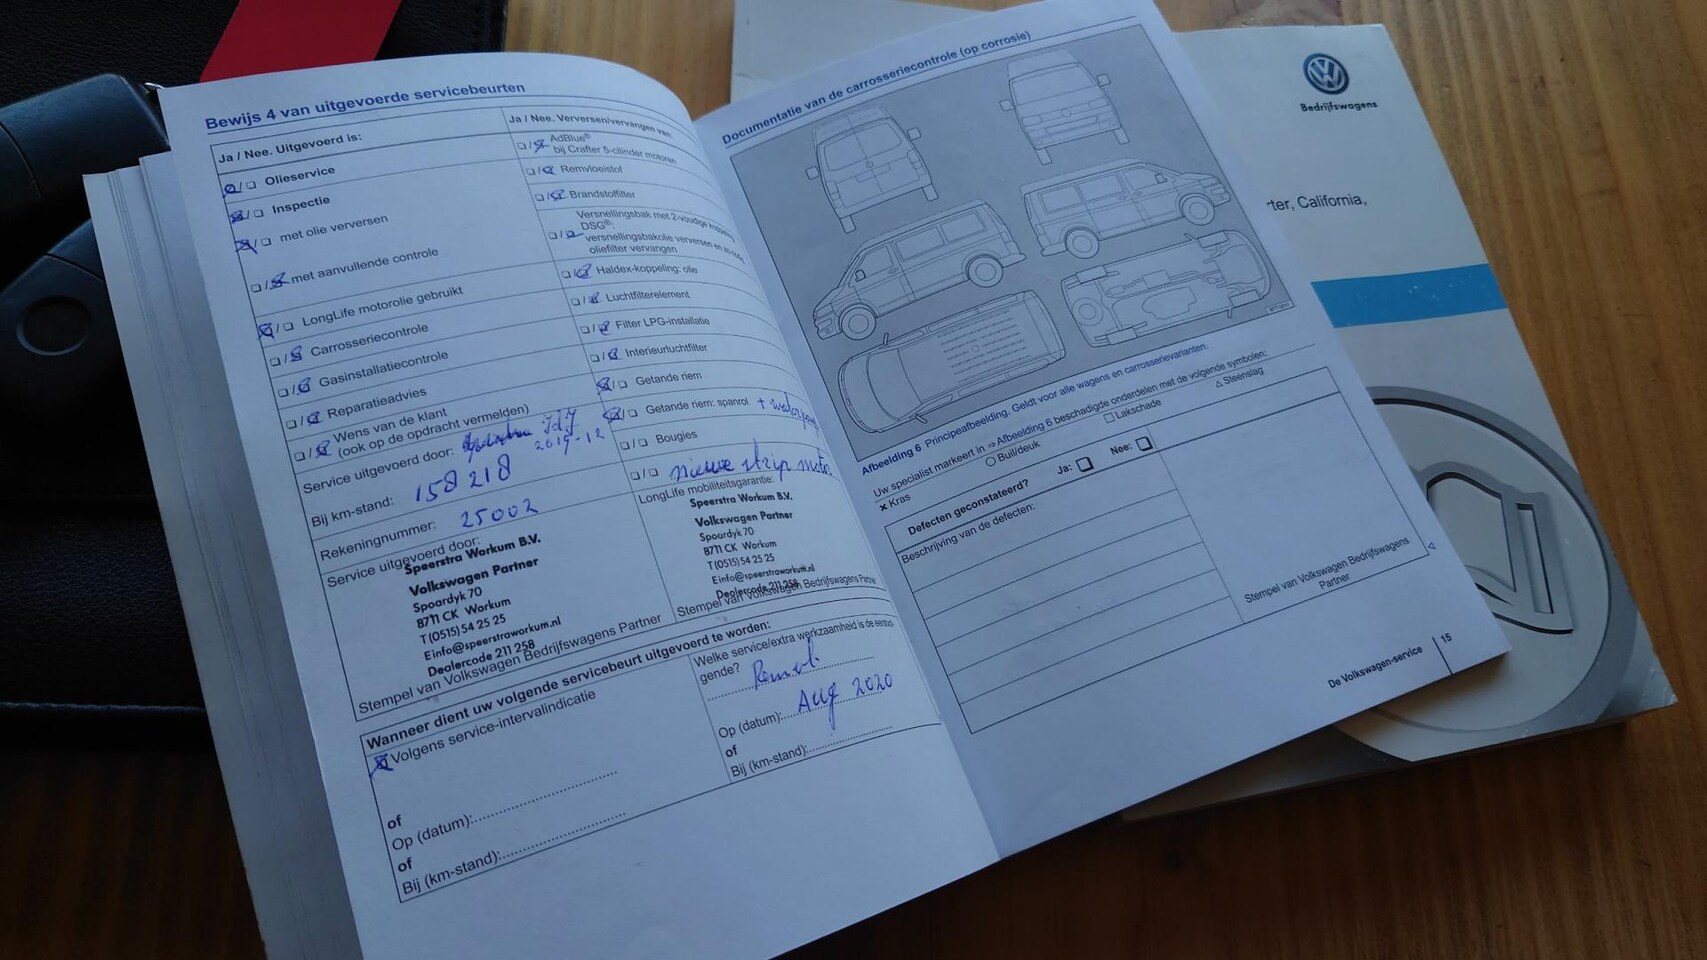 Bewijs 4 van uitgevoerde servicebeurten
Ja / Nee. Uitgevoerd is:
Olieservice
Inspectie
met olie verversen
met aanvullende controle
LongLife motorolie gebruikt
Carrosseriecontrole
Gasinstallatiecontrole
Reparatieadvies
Wens van de klant
(ook op de opdracht vermelden)
Service uitgevoerd door:
2019-12
Bij km-stand: 158218
Rekeningnummer: 25002
Service uitgevoerd door:
Speerstra Workum B.V.
Volkswagen Partner
Spoardyk 70
8711 CK Workum
T (0515) 54 25 25
E info@speerstraworkum.nl
Dealercode 211 258
Stempel van Volkswagen Bedrijfswagens Partner
Ja / Nee. Verversen/vervangen van:
AdBlue®
bij Crafter 5-cilinder motoren
Remvloeistof
Brandstoffilter
Versnellingsbak met 2-voudige koppeling
DSG®:
versnellingsbakolie verversen en
oliefilter vervangen
Haldex-koppeling: olie
Luchtfilterelement
Filter LPG-installatie
Interieurluchtfilter
Getande riem
Getande riem: spanrol +
Bougies
nieuwe strip motor
LongLife mobiliteitsgarantie:
Speerstra Workum B.V.
Volkswagen Partner
Spoardyk 70
8711 CK Workum
T (0515) 54 25 25
E info@speerstraworkum.nl
Dealercode 211 258
Stempel van Volkswagen Bedrijfswagens Partner
Wanneer dient uw volgende servicebeurt uitgevoerd te worden:
Volgens service-intervalindicatie
of
Op (datum):
of
Bij (km-stand):
Welke service/extra werkzaamheid is de eerstvol-
gende?
Op (datum): Aug 2020
of
Bij (km-stand):
Documentatie van de carrosseriecontrole (op corrosie)
Afbeelding 6 Principeafbeelding. Geldt voor alle wagens en carrosserievarianten.
Uw specialist markeert in ⇒ Afbeelding 6 beschadigde onderdelen met de volgende symbolen:
× Kras ○ Buil/deuk □ Lakschade △ Steenslag
Defecten geconstateerd? Ja: Nee:
Beschrijving van de defecten:
Stempel van Volkswagen Bedrijfswagens
Partner
De Volkswagen-service 15
Bedrijfswagens
rter, California,